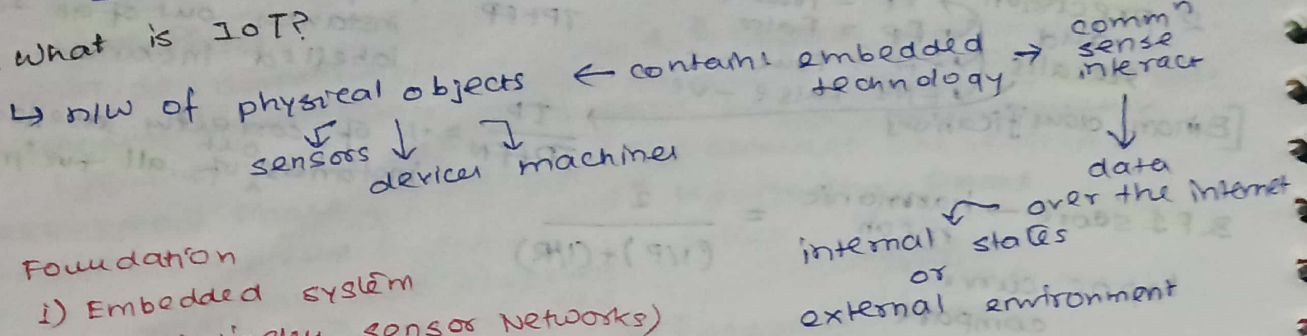 What is IoT?
↳ n/w of physical objects ← contains embedded technology → commⁿ sense interact
sensors devices machines
data
over the internet
internal states
or
external environment
Foundation
i) Embedded system
sensor Networks)